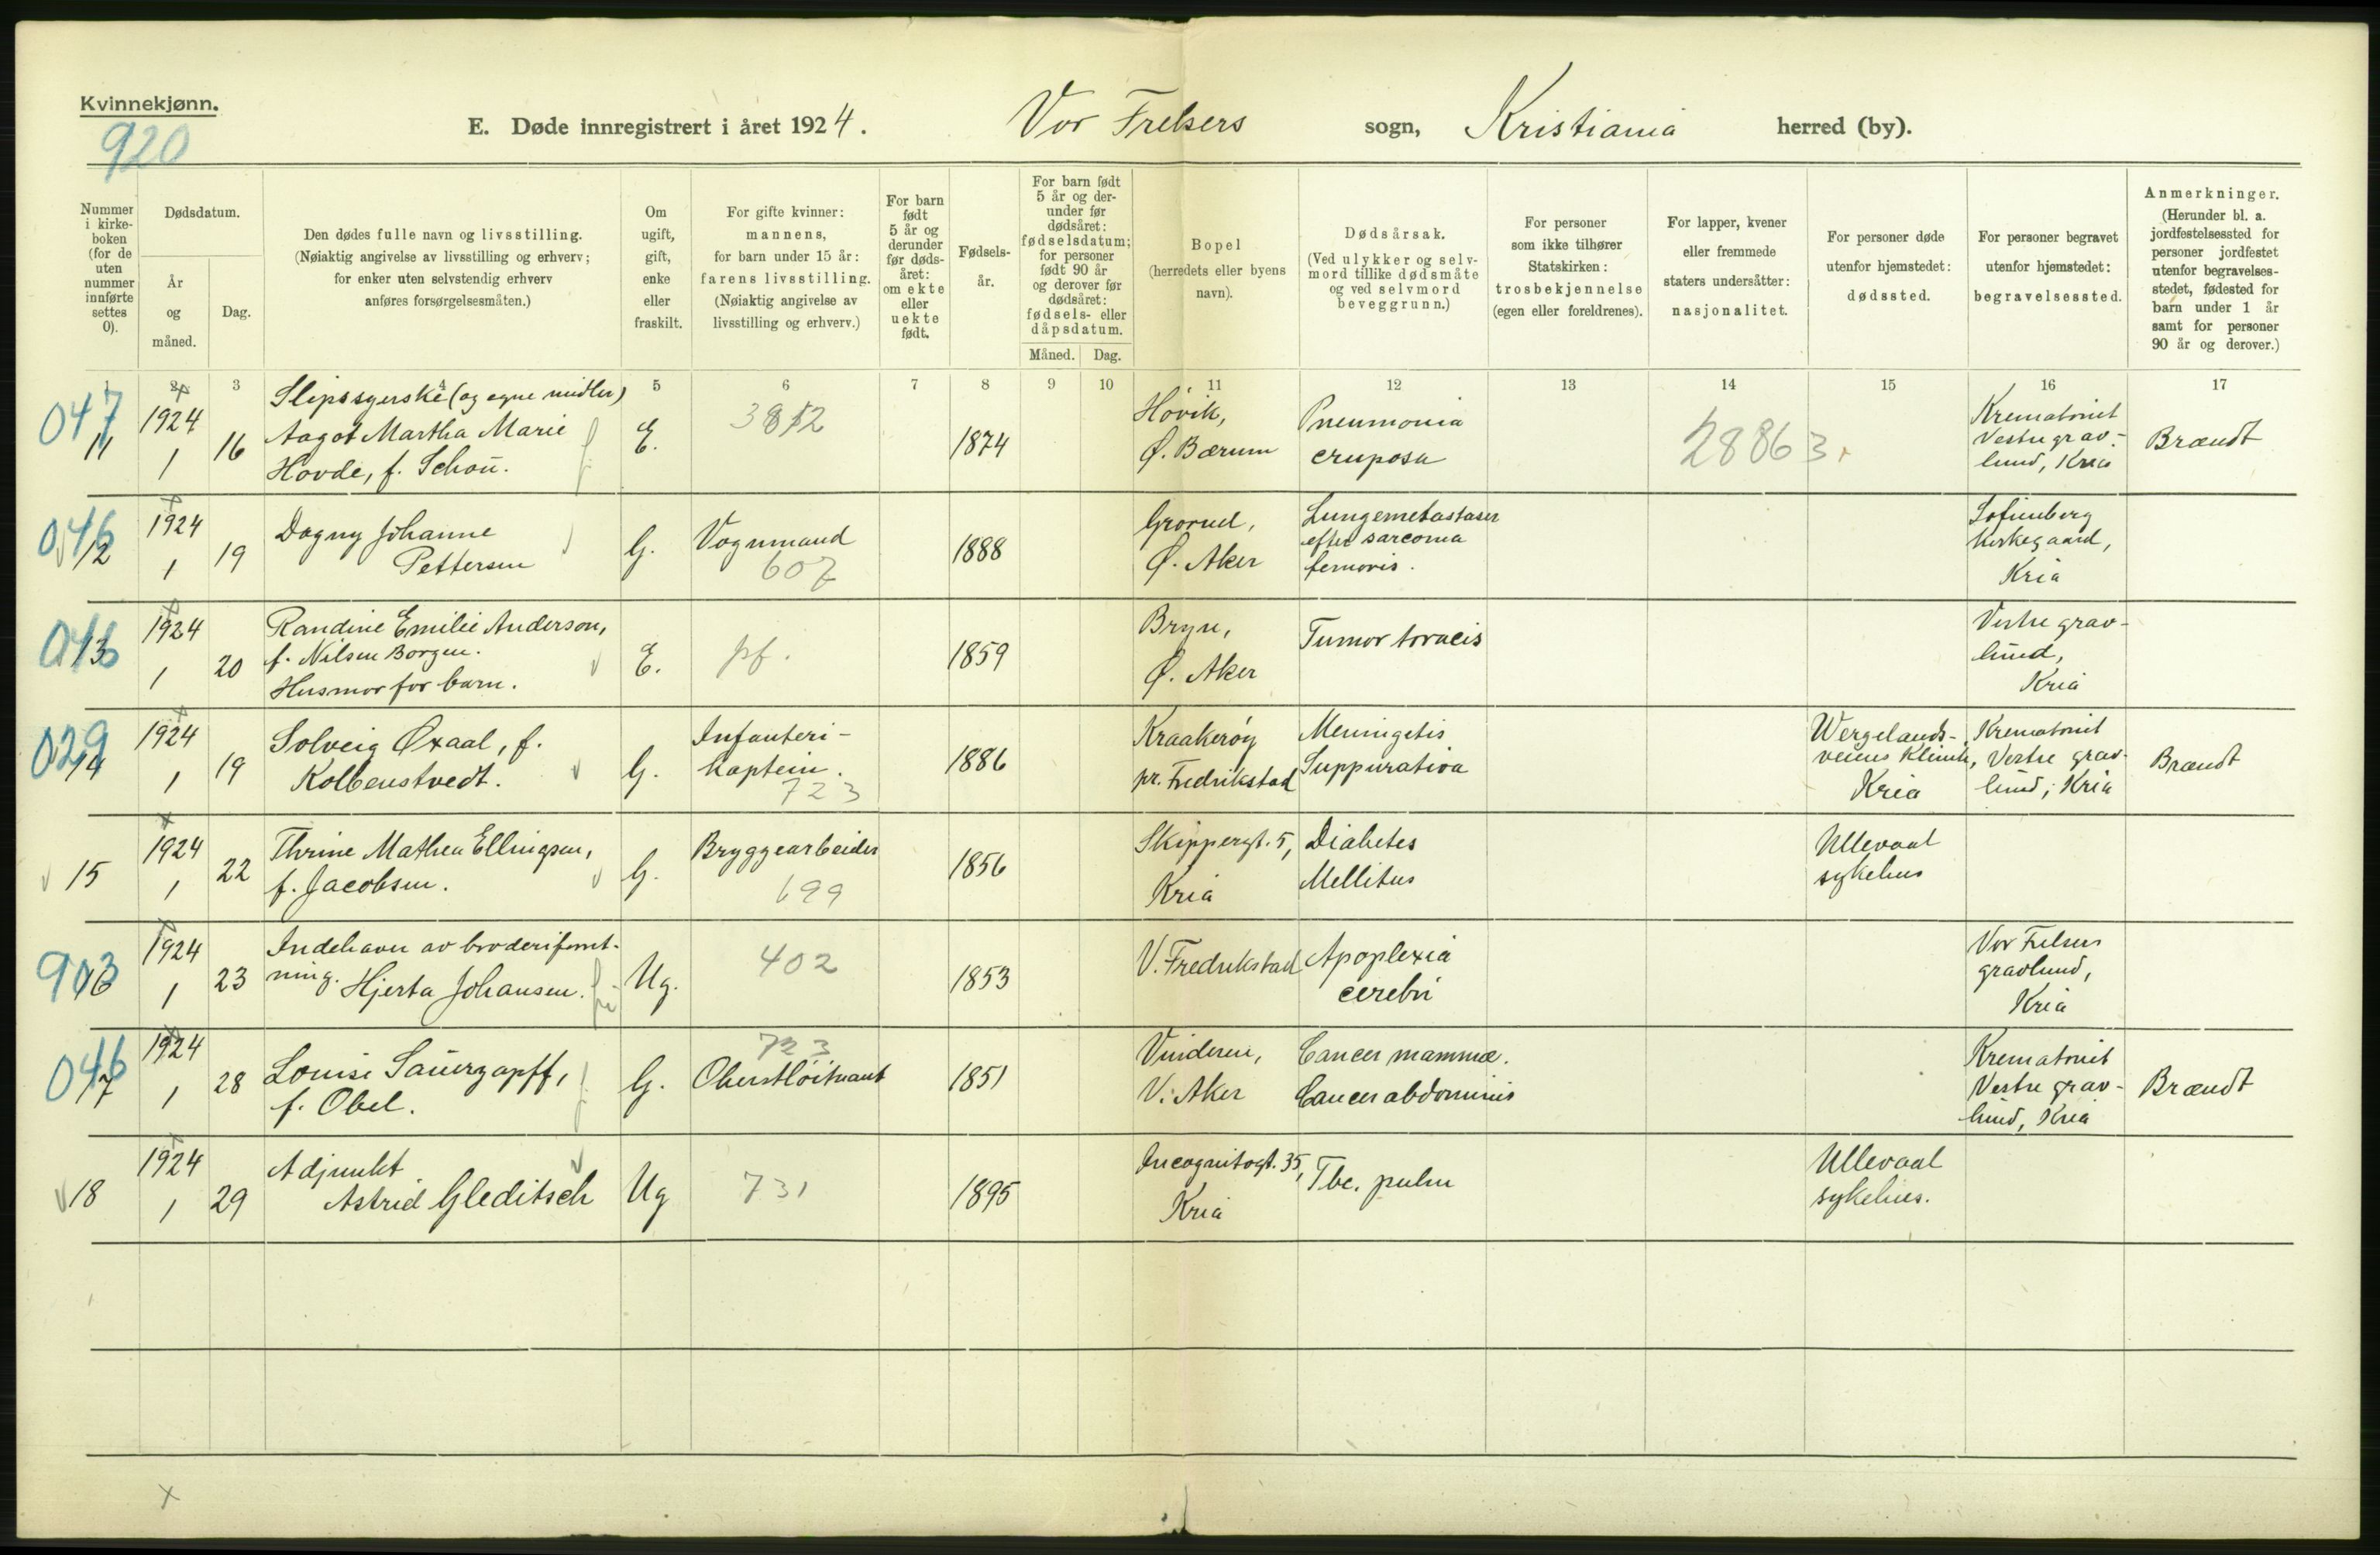 Kvinnekjønn.
920
E. Døde innregistrert i året 1924. Vor Frelsers sogn, Kristiania herred (by).
Nummer i kirke-boken (for de uten nummer innførte settes 0).
Dødsdatum.
År og måned.
Dag.
Den dødes fulle navn og livsstilling.
(Nøiaktig angivelse av livsstilling og erhverv;
for enker uten selvstendig erhverv
anføres forsørgelsesmåten.)
Om
ugift,
gift,
enke
eller
fraskilt.
For gifte kvinner:
mannens,
for barn under 15 år:
farens livsstilling.
(Nøiaktig angivelse av
livsstilling og erhverv.)
For barn
født
5 år og
derunder
før døds-
året:
om ekte
eller
uekte
født.
Fødsels-
år.
For barn født
5 år og der-
under før
dødsåret:
fødselsdatum;
for personer
født 90 år
og derover før
dødsåret:
fødsels- eller
dåpsdatum.
Måned. Dag.
Bopel
(herredets eller byens
navn).
Dødsårsak.
(Ved ulykker og selv-
mord tillike dødsmåte
og ved selvmord
beveggrunn.)
For personer
som ikke tilhører
Statskirken:
trosbekjennelse
(egen eller foreldrenes).
For lapper, kvener
eller fremmede
staters undersåtter:
nasjonalitet.
For personer døde
utenfor hjemstedet:
dødssted.
For personer begravet
utenfor hjemstedet:
begravelsessted.
Anmerkninger.
(Herunder bl. a.
jordfestelsessted for
personer jordfestet
utenfor begravelses-
stedet, fødested for
barn under 1 år
samt for personer
90 år og derover.)
1 2 3 4 5 6 7 8 9 10 11 12 13 14 15 16 17
047
11
1924
1
16
Slipssyerske (og egne midler)
Aagot Martha Marie
Hovde, f. Schou.
E.
3812
1874
Høvik,
Ø. Bærum
Pneumonia
cruposa
28863
Krematoriet
Vestre grav-
lund, Kria
Brændt
046
12
1924
1
19
Dagny Johanne
Pettersen
G.
Vognmand
607
1888
Grorud,
Ø. Aker
Lungemetastaser
efter sarcoma
femoris.
Sofienberg
kirkegaard,
Kria
046
13
1924
1
20
Randine Emilie Anderson,
f. Nilsen Borgen.
Husmor for barn.
E.
pf.
1859
Bryn,
Ø. Aker
Tumor toracis
Vestre grav-
lund,
Kria
029
14
1924
1
19
Solveig Øxaal, f.
Kolbenstvedt.
G.
Infanteri-
kaptein.
723
1886
Kraakerøy
pr. Fredrikstad
Meningitis
Suppurativa
Wergelands-
veiens Klinik,
Kria
Krematoriet
Vestre grav-
lund, Kria
Brændt
15
1924
1
22
Thrine Mathea Ellingsen,
f. Jacobsen.
G.
Bryggearbeider
699
1856
Skippergt. 5,
Kria
Diabetes
Mellitus
Ullevaal
sykehus
903
16
1924
1
23
Indehaver av broderiforret-
ning. Hjerta Johansen.
Ug.
402
1853
V. Fredrikstad
Apoplexia
cerebri
Vor Frelsers
gravlund,
Kria
046
17
1924
1
28
Louise Sauerzapff,
f. Obel.
G.
723
Oberstløitnant
1851
Vinderen,
V. Aker
Cancer mammæ.
Cancer abdominis
Krematoriet
Vestre grav-
lund, Kria
Brændt
18
1924
1
29
Adjunkt
Astrid Gleditsch
Ug
731
1895
Incognitogt. 35,
Kria
Tbc. pulm
Ullevaal
sykehus.